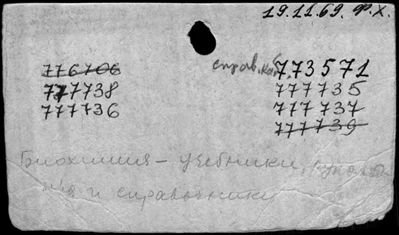 19.11.69. Ф.Х.
776706 справ.каб. 773571
777738 777735
777736 777737
777739
Биохимия – учебники,
и справочники